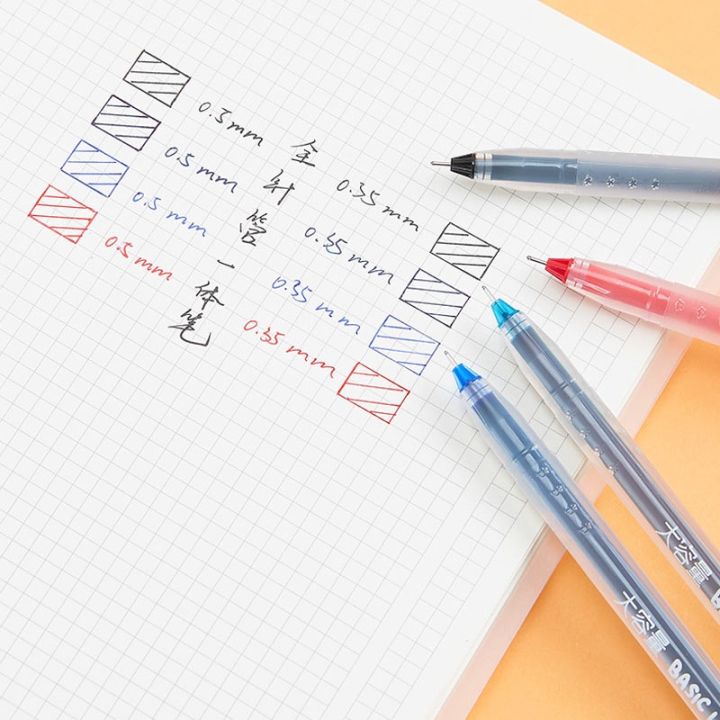 0.5 mm
0.5 mm
0.5 mm
0.5 mm
全针管一体笔
0.35 mm
0.35 mm
0.35 mm
0.35 mm
大容量
大容量 BASIC